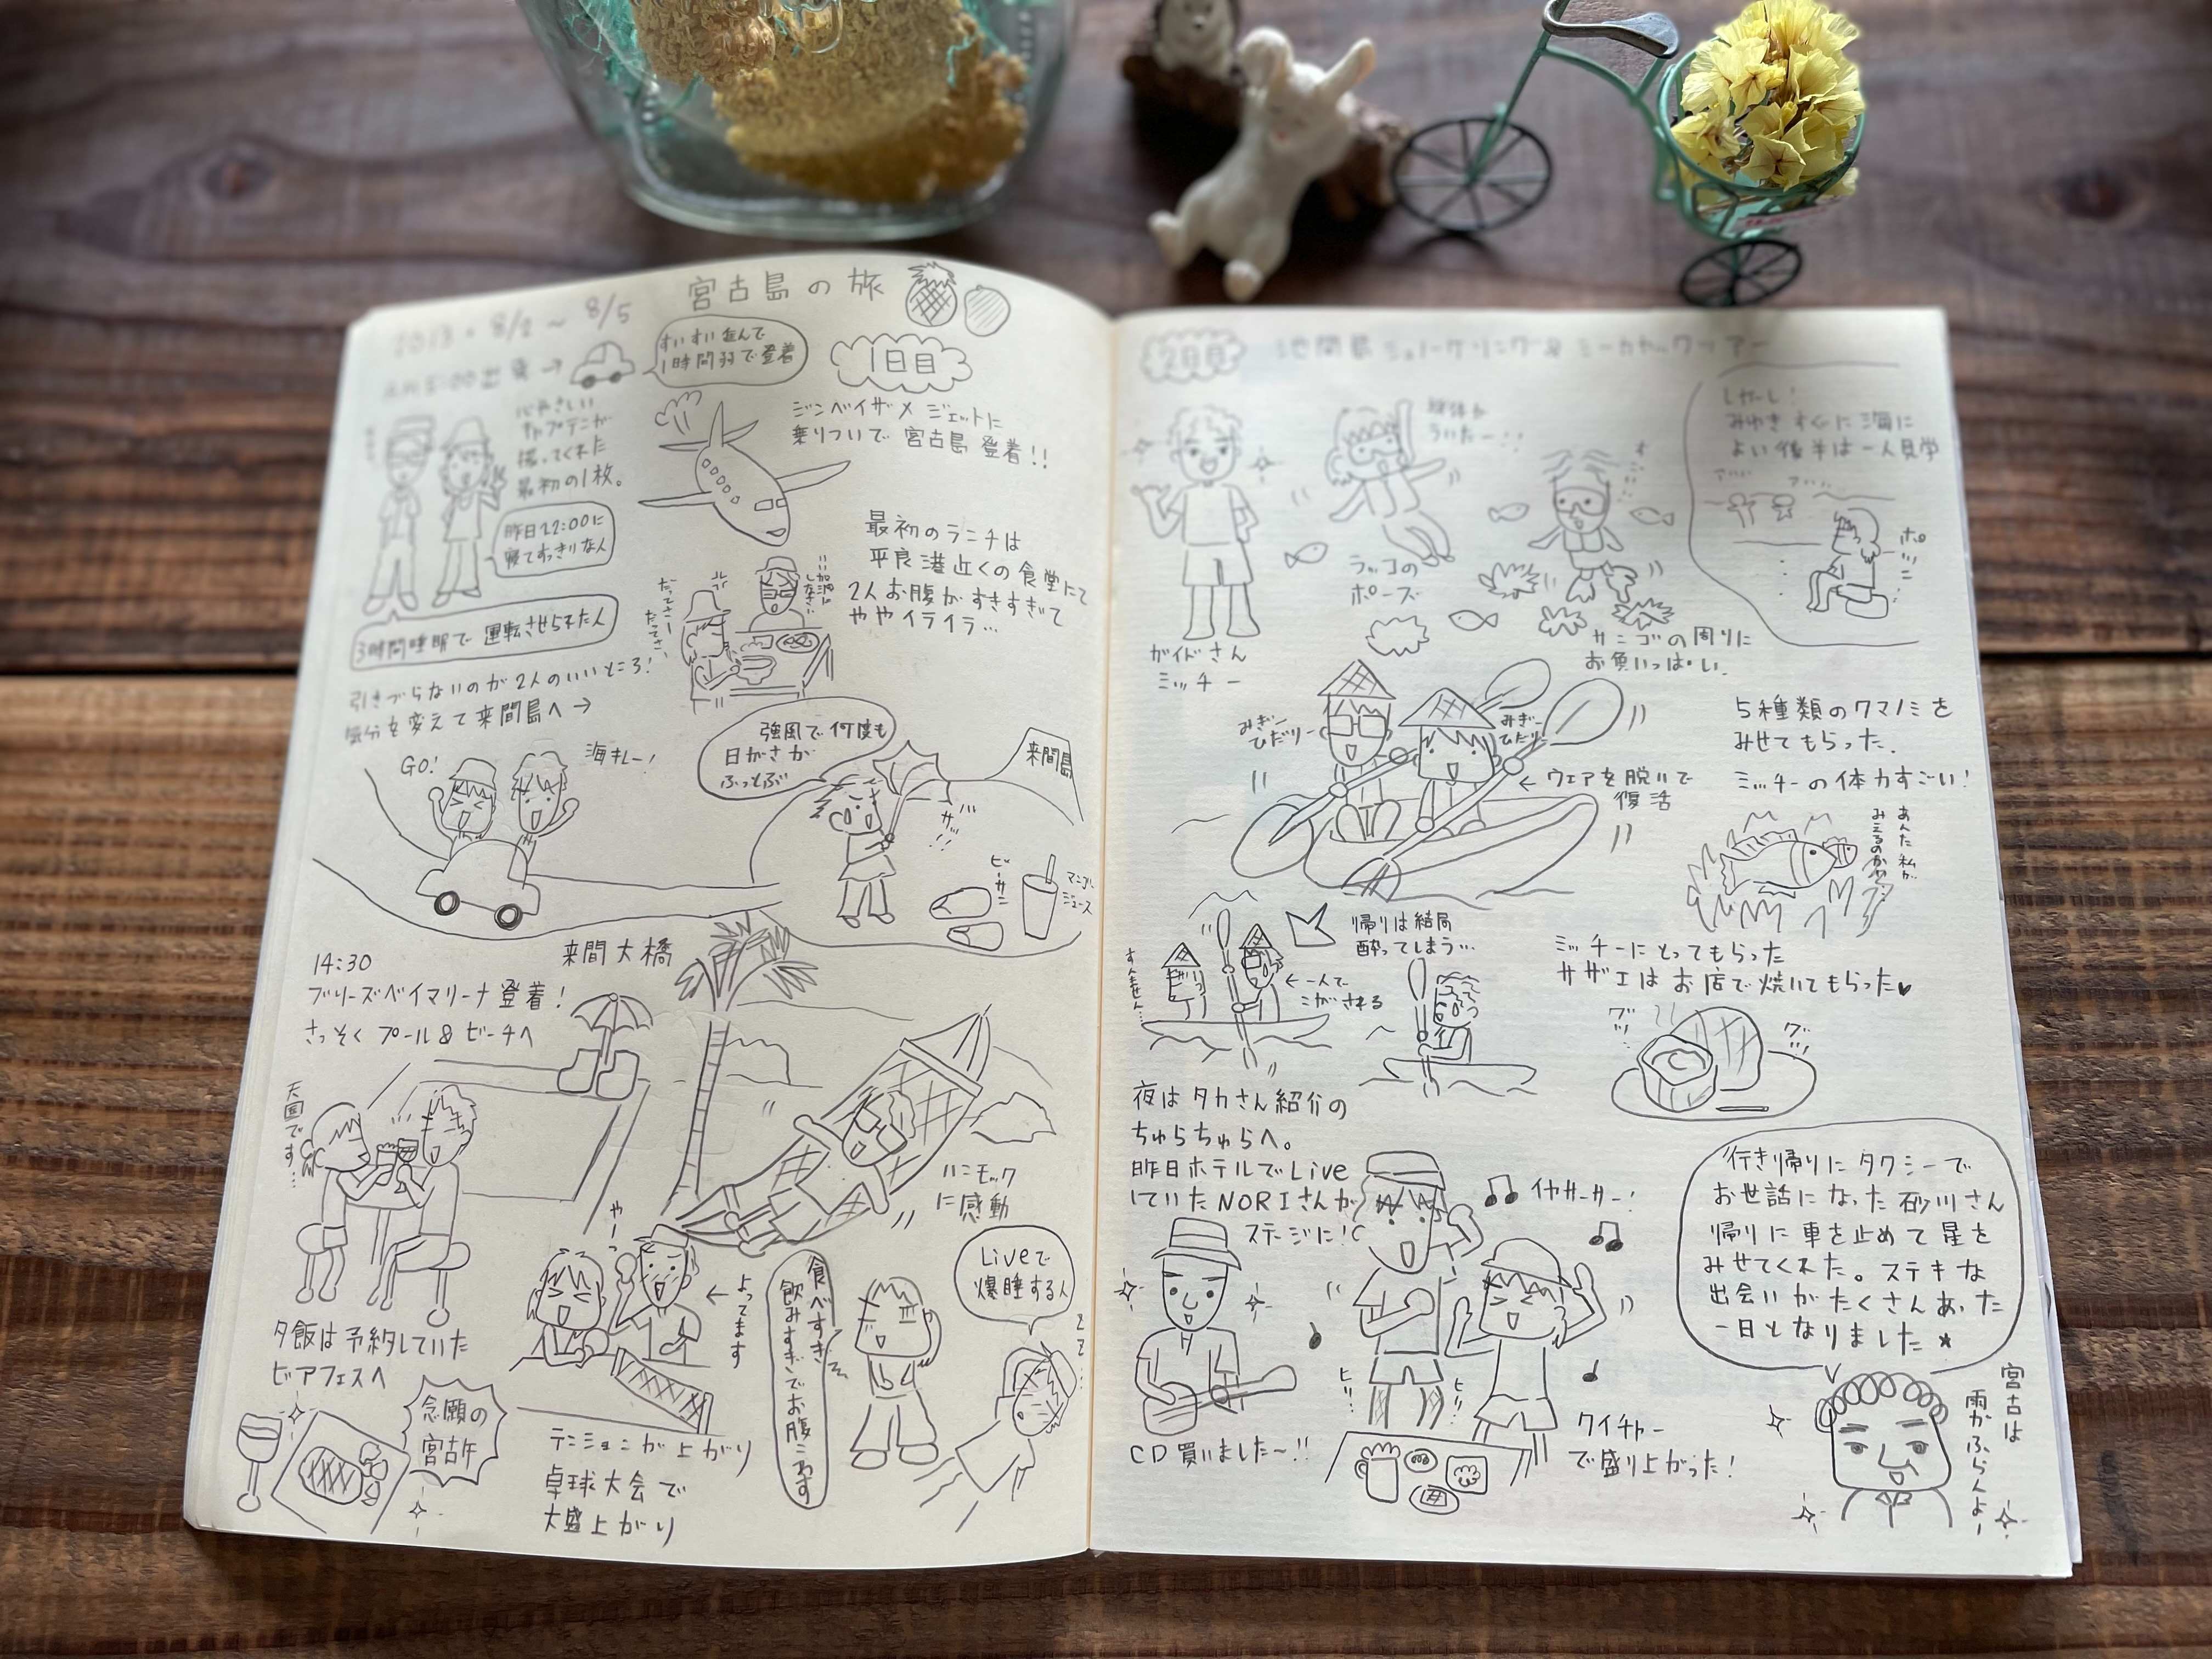 宮古島の旅
2013・8/2〜8/5
AM5:00出発→
すいすい進んで
1時間弱で登着
1日目
心やさしい
キャプテンが
撮ってくれた
最初の1枚。
昨日22:00に
寝てすっきりな人
3時間睡眠で運転させられた人
ジンベイザメジェットに
乗りついで宮古島登着!!
最初のランチは
平良港近くの食堂にて
2人お腹がすきすぎて
ややイライラ…
いい加減に
しなさい
だってさー
だってさー
引きづらないのが2人のいいところ!
気分を変えて来間島へ→
GO!
海キレー!
強風で何度も
日がさが
ふっとぶ
来間島
ビーサン
マンゴー
ジュース
来間大橋
14:30
ブリーズベイマリーナ登着!
さっそくプール&ビーチへ
天国です…
ハンモック
に感動
夕飯は予約していた
ビアフェスへ
念願の
宮古牛
やーっ
←よってます
テンションが上がり
卓球大会で
大盛上がり
食べすぎ
飲みすぎでお腹こわす
Liveで
爆睡する人
ZZ…
2日目
池間島シュノーケリング&シーカヤックツアー
ガイドさん
ミッチー
ういたー!!
ラッコの
ポーズ
サンゴの周りに
お魚いっぱい。
しかーし!
みゆきすぐに海に
よい後半は一人見学
ポツン
みぎー
ひだりー
みぎー
ひだりー
←ウェアを脱いで
復活
5種類のクマノミを
みせてもらった。
ミッチーの体力すごい!
あんた私が
みえるのかい?
帰りは結局
酔ってしまう…
すんません…
←一人で
こがされる
ミッチーにとってもらった
サザエはお店で焼いてもらった♥
グツ…
グツ…
夜はタカさん紹介の
ちゅらちゅらへ。
昨日ホテルでLive
していたNORIさんが
ステージに!
CD買いました〜!!
イヤサーサー!
ヒ!!
ヒ!!
クイチャー
で盛り上がった!
行き帰りにタクシーで
お世話になった砂川さん
帰りに車を止めて星を
みせてくれた。ステキな
出会いがたくさんあった
一日となりました★
宮古は
雨がふらんよー